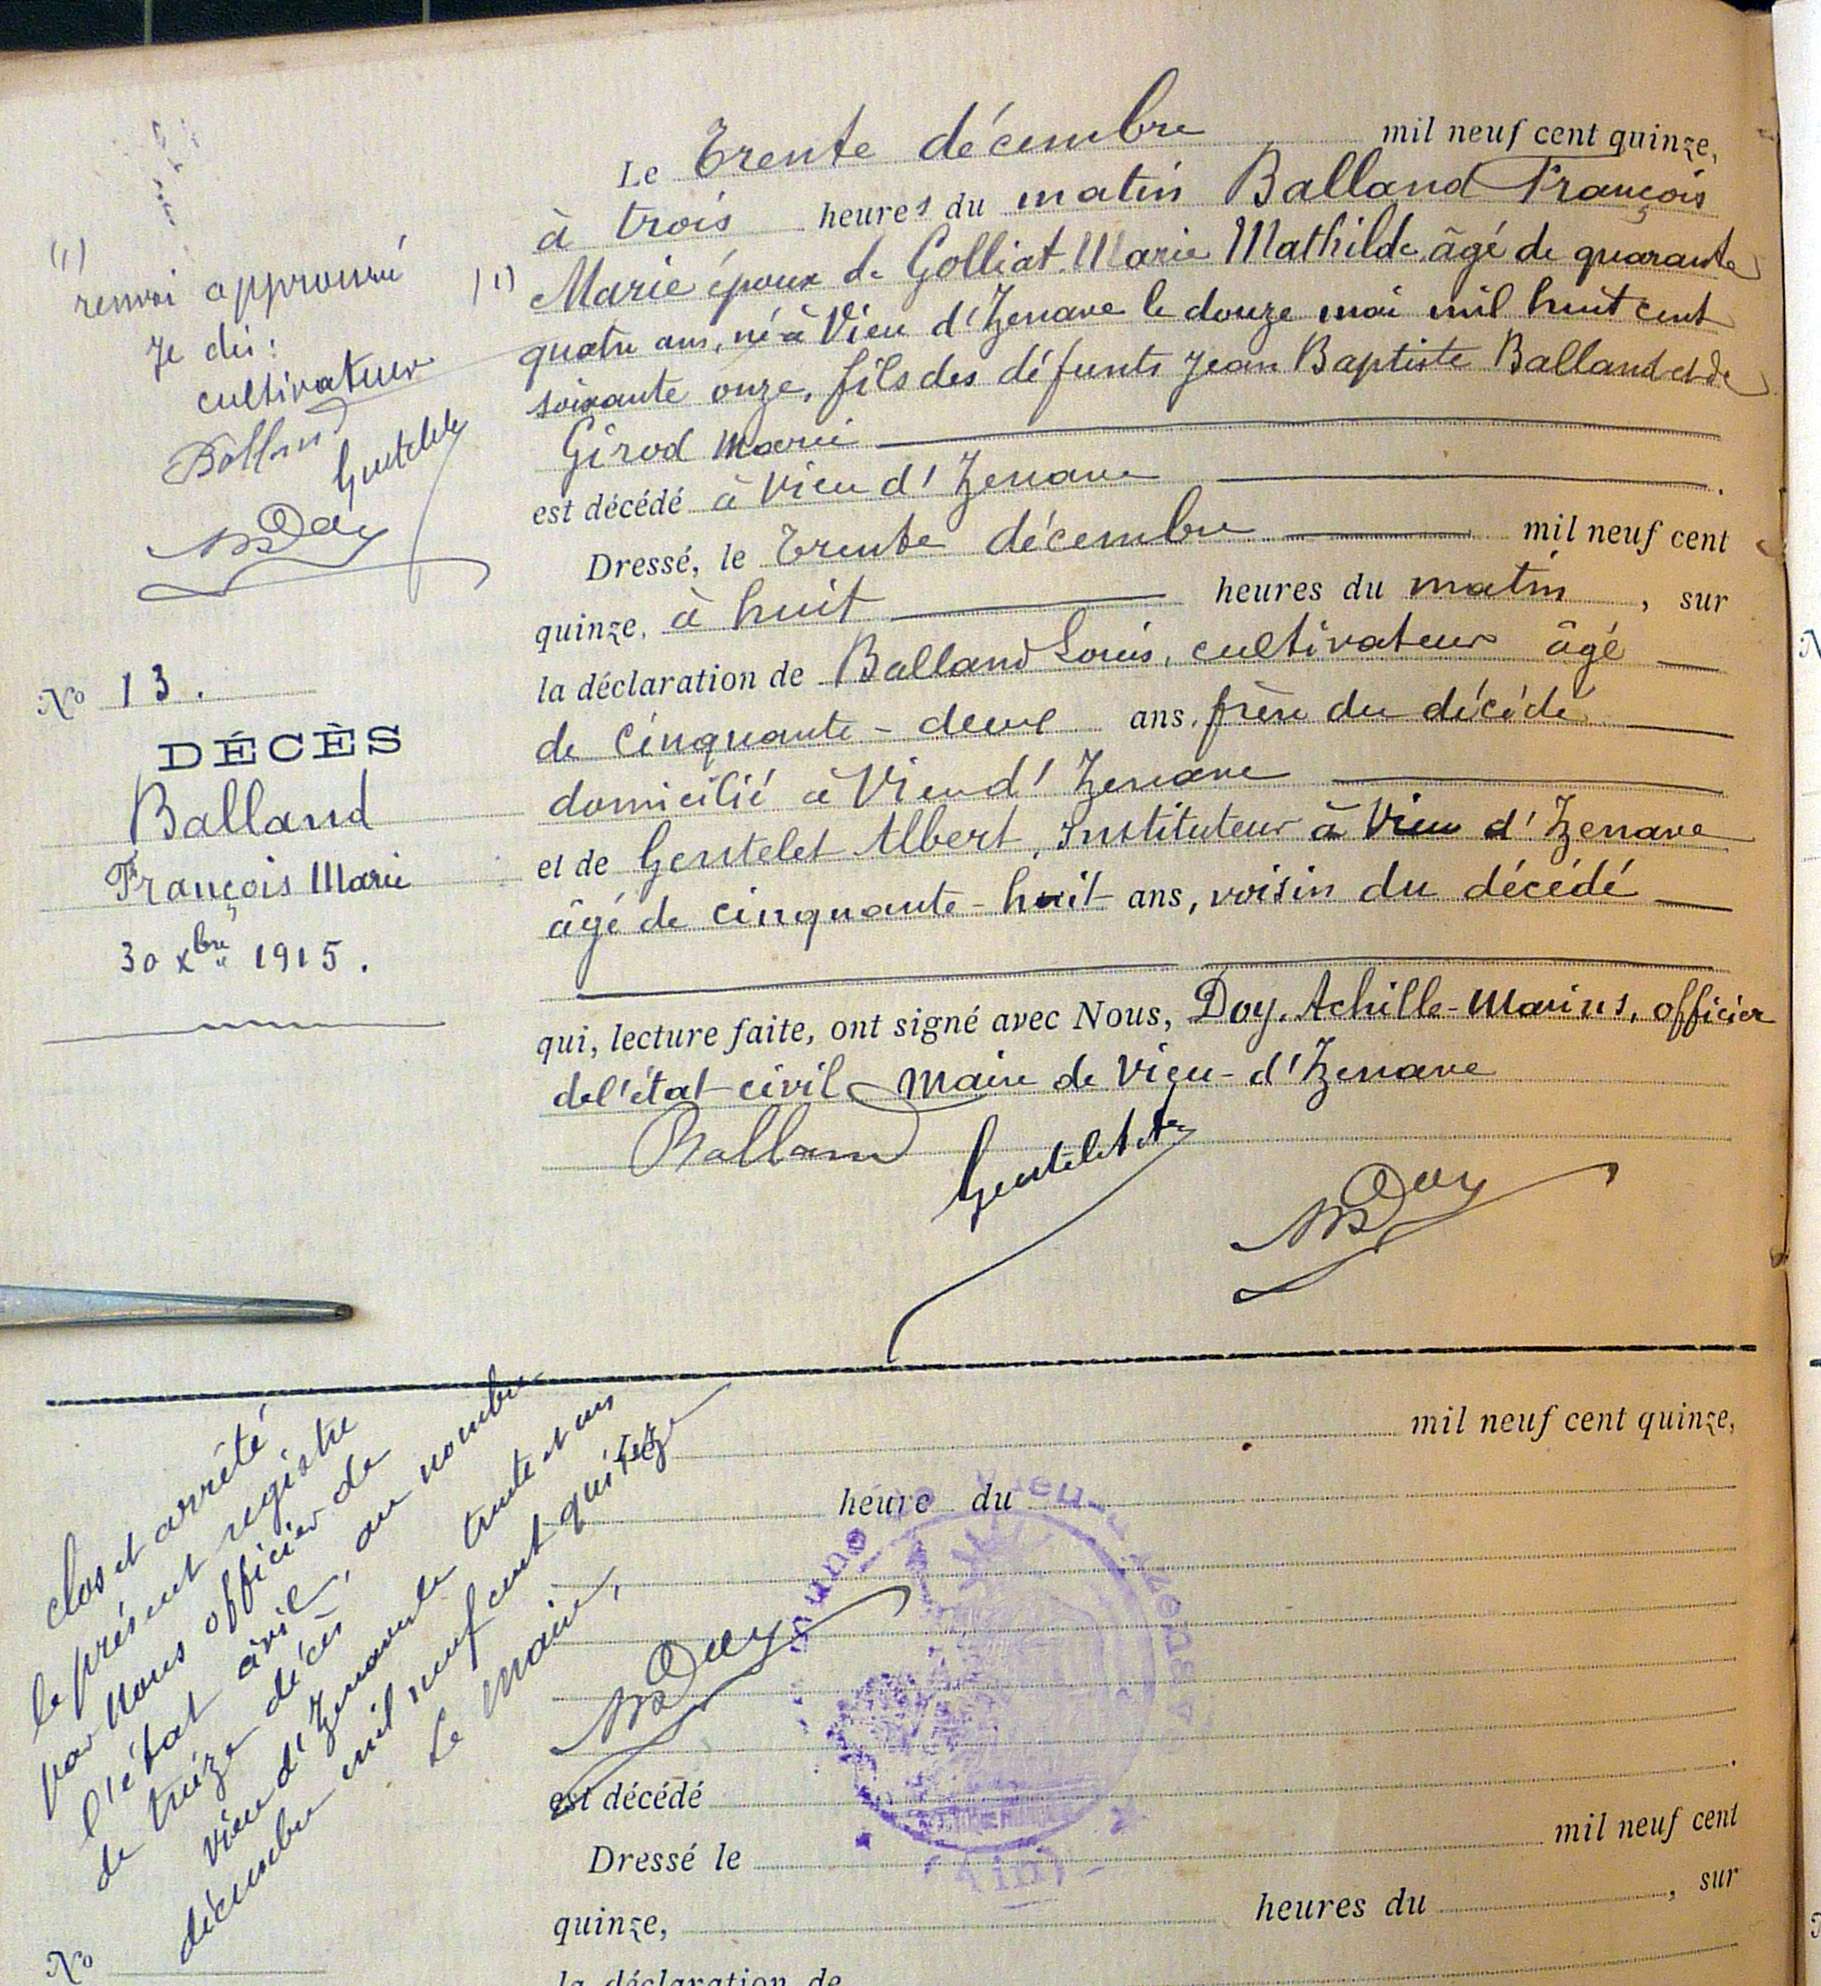 (1)
renvoi approuvé
Je dis :
cultivateur
Balland
Gentelet
Doy
No 13.
DÉCÈS
Balland
François Marie
30 xbre 1915.
Le Trente décembre mil neuf cent quinze,
à trois heures du matin Balland François
(1) Marie époux de Golliat Marie Mathilde, âgé de quarante
quatre ans, né à Vieu d'Izenave le douze mai mil huit cent
soixante onze, fils des défunts Jean Baptiste Balland et de
Girod Marie
est décédé à Vieu d'Izenave .
Dressé, le Trente décembre mil neuf cent
quinze, à huit heures du matin , sur
la déclaration de Balland Louis, cultivateur âgé
de cinquante-deux ans, frère du décédé
domicilié à Vieu d'Izenave
et de Gentelet Albert, Instituteur à Vieu d'Izenave
âgé de cinquante-huit ans, voisin du décédé
qui, lecture faite, ont signé avec Nous, Doy, Achille-Marius, officier
de l'état civil Maire de Vieu-d'Izenave
Balland
Gentelet
Doy
Clos et arrêté
le présent registre
par Nous officier de
l'état civil, au nombre
de treize décès
Vieu d'Izenave le trente et un
décembre mil neuf cent quinze
Le Maire,
Doy
Le mil neuf cent quinze,
heure du
est décédé .
Dressé le mil neuf cent
quinze, heures du , sur
No
la déclaration de
(Ain)